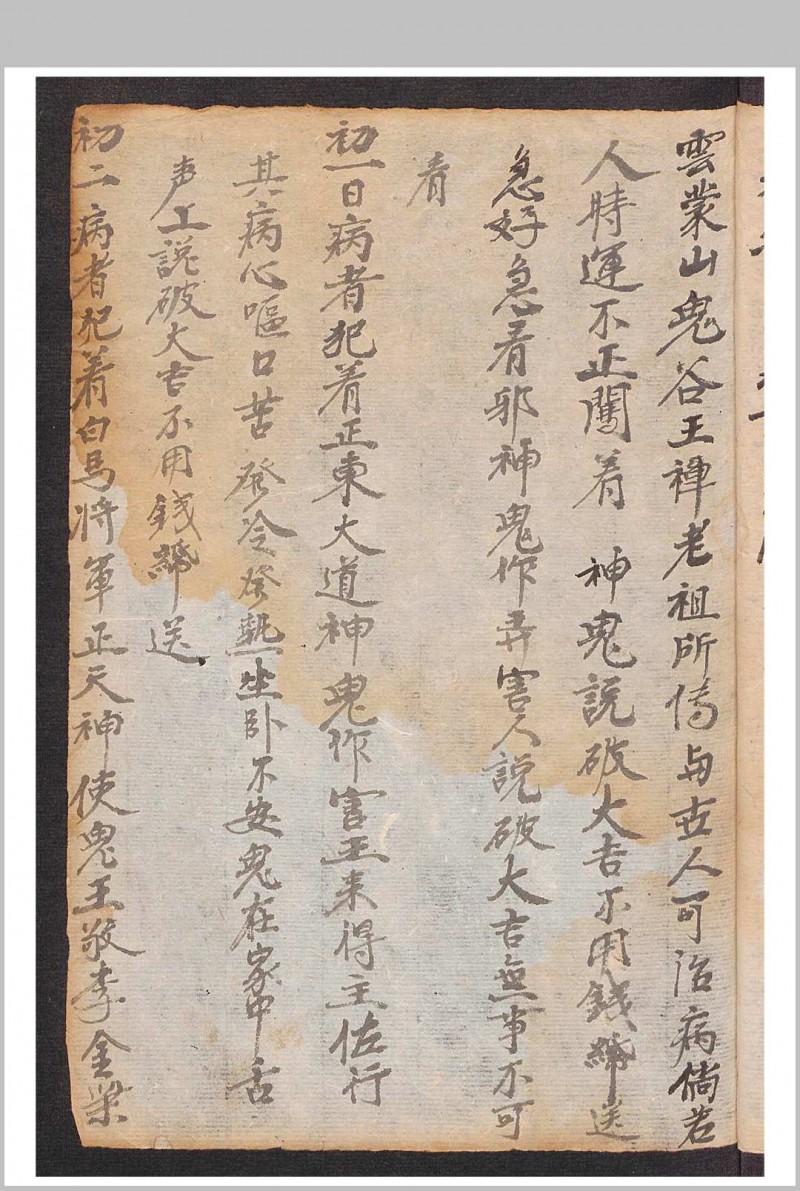 雲蒙山鬼谷王禅老祖所傳与世人可治病倘若
人時運不正闖着 神鬼説破大吉不用錢紙送
急好急看邪神鬼作弄害人説破大吉無事不可
看
初一日病者犯着正東大道神鬼作害王来得主佐行
其病心嘔口苦發冷發熱坐卧不安鬼在家中舌
声上説破大吉不用錢紙送
初二病者犯着白馬将軍正天神使鬼王敬李金梁